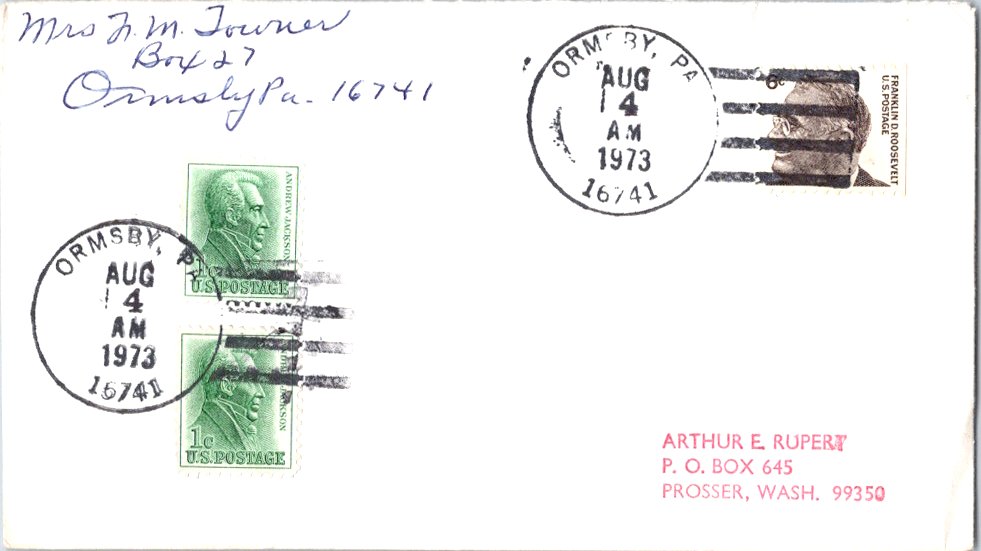 Mrs N. M. Towner
Box 27
Ormsby Pa. 16741
ORMSBY, PA
AUG
4
AM
1973
16741
6c
FRANKLIN D. ROOSEVELT
U.S. POSTAGE
ANDREW JACKSON
1c
U.S. POSTAGE
ORMSBY, PA
AUG
4
AM
1973
16741
JACKSON
1c
U.S. POSTAGE
ARTHUR E. RUPERT
P. O. BOX 645
PROSSER, WASH. 99350